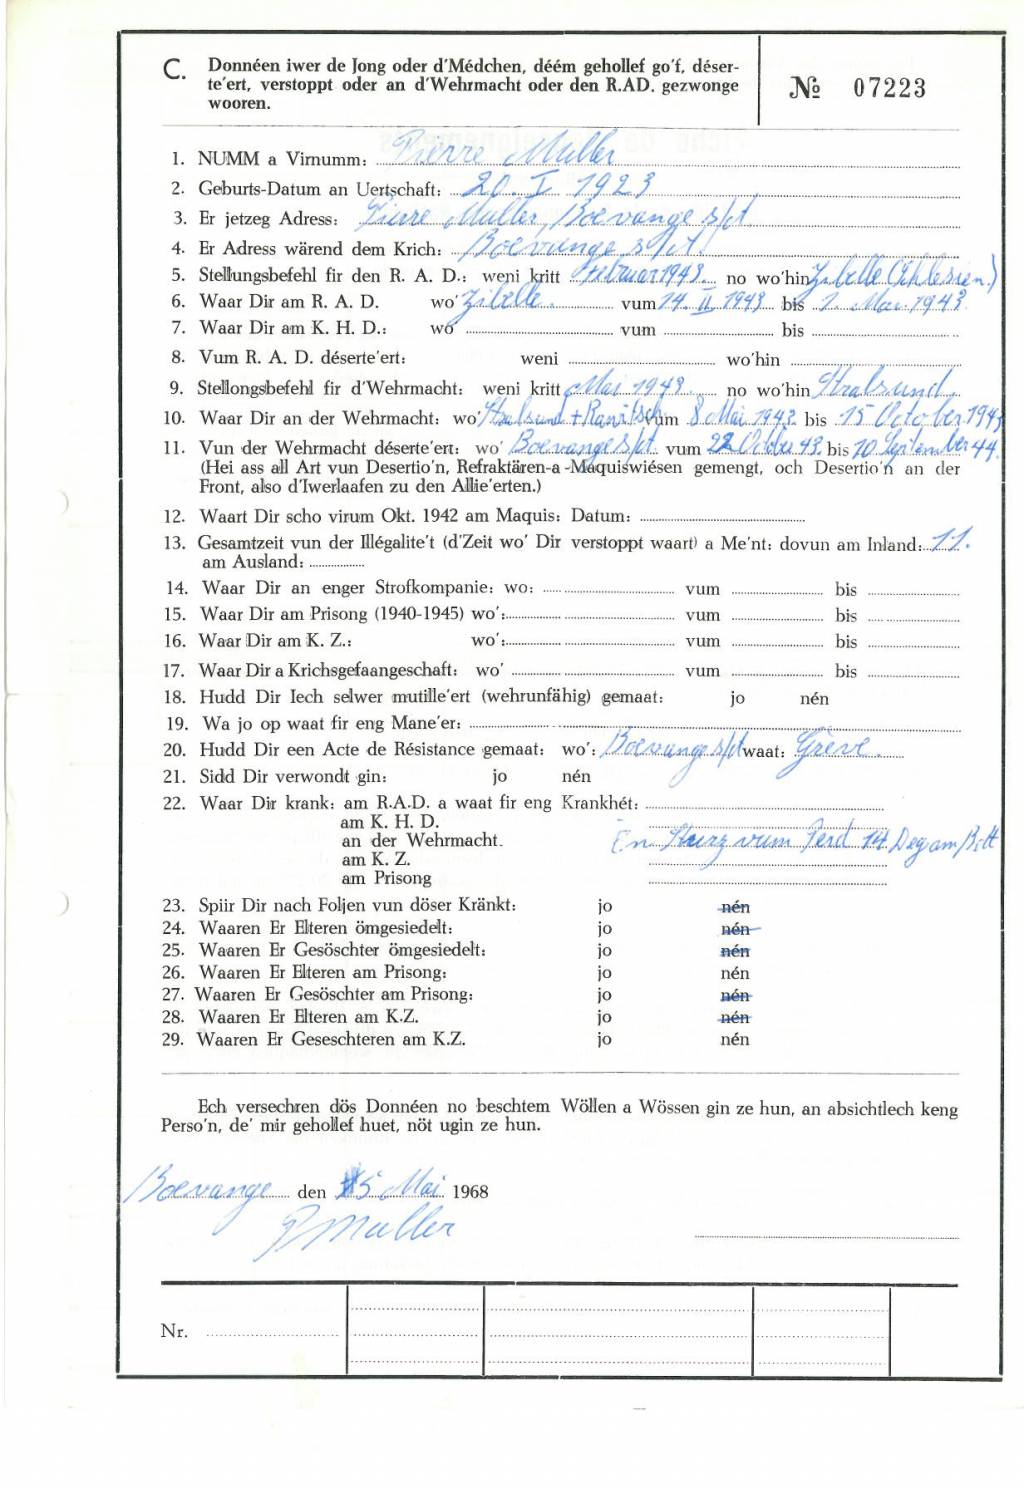 C. Donnéen iwer de Jong oder d'Médchen, déém gehollef go'f, déser-
te'ert, verstoppt oder an d'Wehrmacht oder den R.AD. gezwonge
wooren.
№ 07223
1. NUMM a Virnumm: Pierre Muller
2. Geburts-Datum an Uertschaft: 20. I 1923
3. Er jetzeg Adress: Pierre Muller, Boevange s/at
4. Er Adress wärend dem Krich: Boevange s/at.
5. Stellungsbefehl fir den R. A. D.: weni kritt Februar 1943. no wo'hin Zibelle (Schlesien.)
6. Waar Dir am R. A. D. wo' Zibelle. vum 14. II 1943 bis 1. Mai. 1943.
7. Waar Dir am K. H. D.: wo' vum bis
8. Vum R. A. D. déserte'ert: weni wo'hin
9. Stellongsbefehl fir d'Wehrmacht: weni kritt Mai 1943. no wo'hin Stralsund.
10. Waar Dir an der Wehrmacht: wo' Stralsund + vum 8 Mai 1943. bis 15 October 1943
11. Vun der Wehrmacht déserte'ert: wo' Boevange s/at. vum 22 October 43. bis 10 September 44.
(Hei ass all Art vun Desertio'n, Refraktären-a -Maquiswiésen gemengt, och Desertio'n an der
Front, also d'Iwerlaafen zu den Allie'erten.)
12. Waart Dir scho virum Okt. 1942 am Maquis: Datum:
13. Gesamtzeit vun der Illégalite't (d'Zeit wo' Dir verstoppt waart) a Me'nt: dovun am Inland: 11.
am Ausland:
14. Waar Dir an enger Strofkompanie: wo: vum bis
15. Waar Dir am Prisong (1940-1945) wo': vum bis
16. Waar Dir am K. Z.: wo': vum bis
17. Waar Dir a Krichsgefaangeschaft: wo' vum bis
18. Hudd Dir Iech selwer mutille'ert (wehrunfähig) gemaat: jo nén
19. Wa jo op waat fir eng Mane'er:
20. Hudd Dir een Acte de Résistance gemaat: wo': Boevange s/at waat: Grève.
21. Sidd Dir verwondt gin: jo nén
22. Waar Dir krank: am R.A.D. a waat fir eng Krankhét:
am K. H. D.
an der Wehrmacht. En Sturz vum Perd 14 Deg am Bett
am K. Z.
am Prisong
23. Spiir Dir nach Foljen vun döser Kränkt: jo nén
24. Waaren Er Elteren ömgesiedelt: jo nén
25. Waaren Er Gesöschter ömgesiedelt: jo nén
26. Waaren Er Elteren am Prisong: jo nén
27. Waaren Er Gesöschter am Prisong: jo nén
28. Waaren Er Elteren am K.Z. jo nén
29. Waaren Er Geseschteren am K.Z. jo nén
Ech versechren dös Donnéen no beschtem Wöllen a Wössen gin ze hun, an absichtlech keng
Perso'n, de' mir gehollef huet, nöt ugin ze hun.
Boevange den 5 Mai 1968
P Muller
Nr.